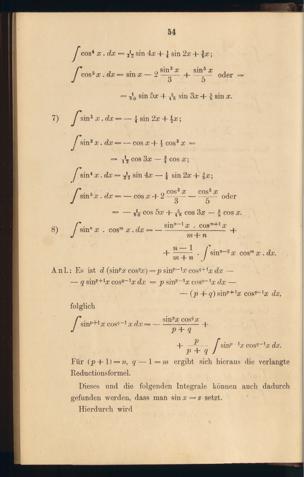 54
∫ cos⁴ x . dx = 1/32 sin 4x + 1/4 sin 2x + 3/8 x;
∫ cos⁵ x . dx = sin x — 2 sin³ x/3 + sin⁵ x/5 oder =
= 1/80 sin 5x + 5/48 sin 3x + 5/8 sin x.
7) ∫ sin² x . dx = — 1/4 sin 2x + 1/2 x;
∫ sin³ x . dx = — cos x + 1/3 cos³ x =
= 1/12 cos 3x — 3/4 cos x;
∫ sin⁴ x . dx = 1/32 sin 4x — 1/4 sin 2x + 3/8 x;
∫ sin⁵ x . dx = — cos x + 2 cos³ x/3 — cos⁵ x/5 oder
= — 1/80 cos 5x + 5/48 cos 3x — 5/8 cos x.
8) ∫ sinⁿ x . cosᵐ x . dx = — sinⁿ⁻¹ x . cosᵐ⁺¹ x/m + n +
+ n — 1/m + n . ∫ sinⁿ⁻² x cosᵐ x . dx.
Anl.: Es ist d (sinᵖ x cos^q x) = p sinᵖ⁻¹ x cos^(q+1) x dx —
— q sinᵖ⁺¹ x cos^(q—1) x dx = p sinᵖ⁻¹ x cos^(q—1) x dx —
— (p + q) sinᵖ⁺¹ x cos^(q—1) x dx,
folglich
∫ sinᵖ⁺¹ x cos^(q—1) x dx = — sinᵖ x cos^q x/p + q +
+ p/p + q ∫ sinᵖ⁻¹ x cos^(q—1) x dx.
Für (p + 1) = n, q — 1 = m ergibt sich hieraus die verlangte
Reductionsformel.
Dieses und die folgenden Integrale können auch dadurch
gefunden werden, dass man sin x = z setzt.
Hierdurch wird